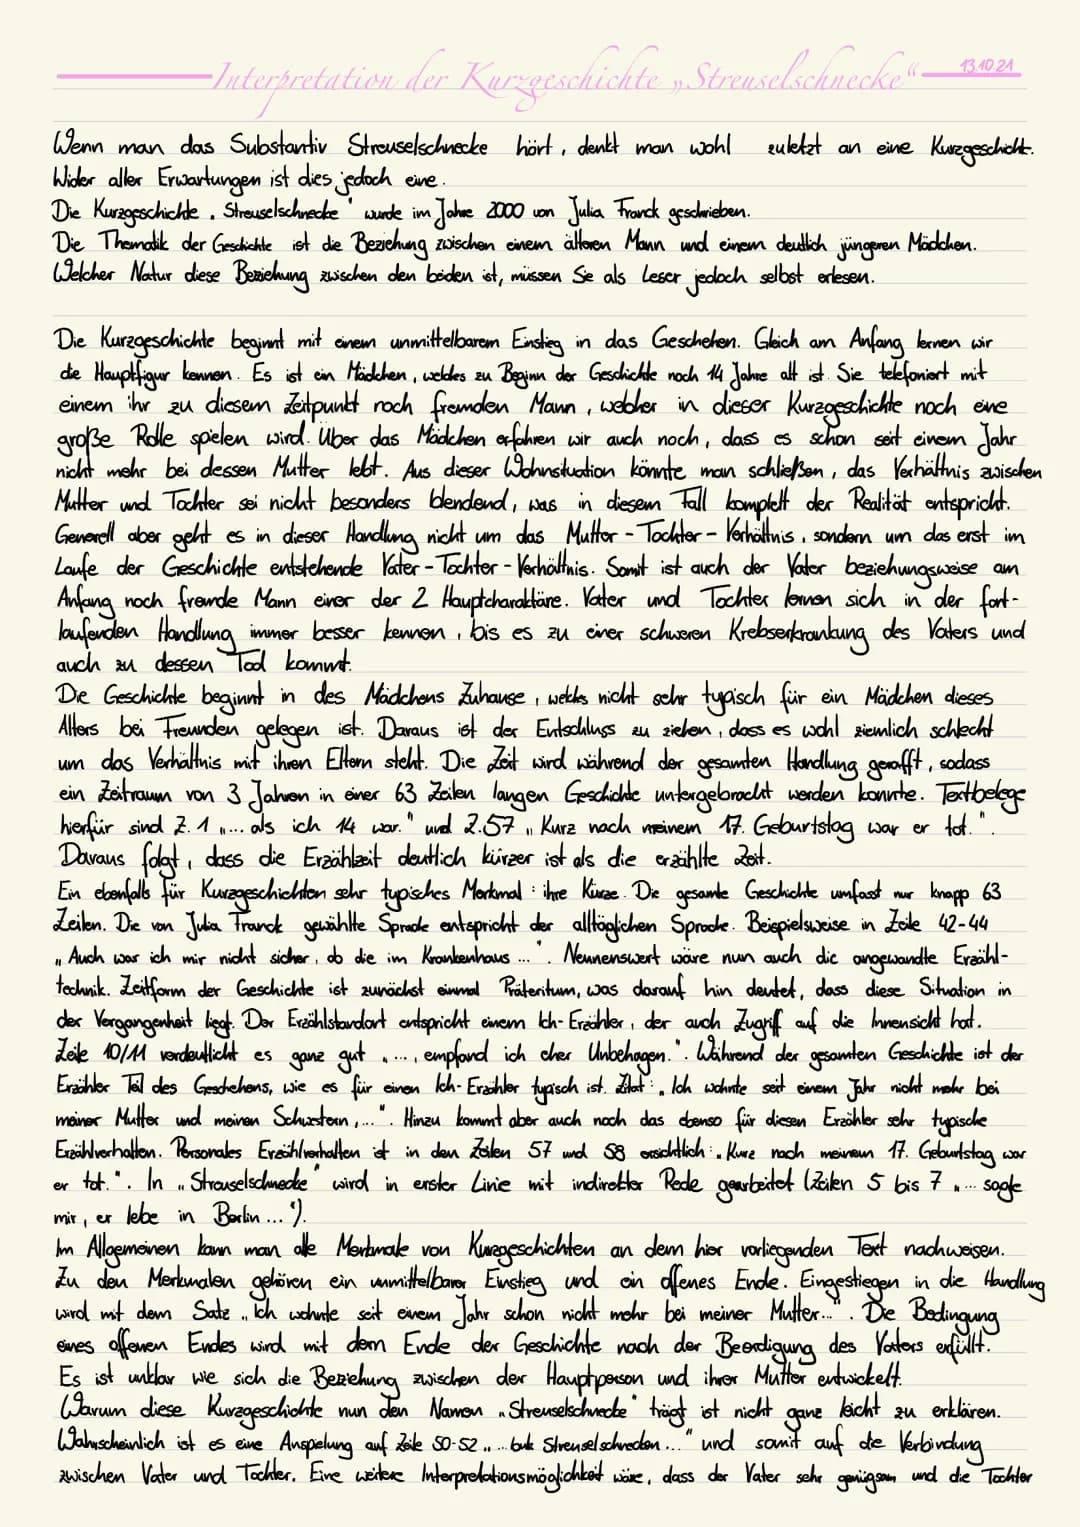 Interpretation der Kurzgeschichte „Streuselschnecke“ 13.10.21
Wenn man das Substantiv Streuselschnecke hört, denkt man wohl zuletzt an eine Kurzgeschicht.
Wider aller Erwartungen ist dies jedoch eine.
Die Kurzgeschichte „Streuselschnecke“ wurde im Jahre 2000 von Julia Franck geschrieben.
Die Thematik der Geschichte ist die Beziehung zwischen einem älteren Mann und einem deutlich jüngeren Mädchen.
Welcher Natur diese Beziehung zwischen den beiden ist, müssen Sie als Leser jedoch selbst erlesen.
Die Kurzgeschichte beginnt mit einem unmittelbarem Einstieg in das Geschehen. Gleich am Anfang lernen wir
die Hauptfigur kennen. Es ist ein Mädchen, welches zu Beginn der Geschichte noch 14 Jahre alt ist. Sie telefoniert mit
einem ihr zu diesem Zeitpunkt noch fremden Mann, welcher in dieser Kurzgeschichte noch eine
große Rolle spielen wird. Über das Mädchen erfahren wir auch noch, dass es schon seit einem Jahr
nicht mehr bei dessen Mutter lebt. Aus dieser Wohnsituation könnte man schließen, das Verhältnis zwischen
Mutter und Tochter sei nicht besonders blendend, was in diesem Fall komplett der Realität entspricht.
Generell aber geht es in dieser Handlung nicht um das Mutter-Tochter-Verhältnis, sondern um das erst im
Laufe der Geschichte entstehende Vater-Tochter-Verhältnis. Somit ist auch der Vater beziehungsweise am
Anfang noch fremde Mann einer der 2 Hauptcharaktäre. Vater und Tochter lernen sich in der fort-
laufenden Handlung immer besser kennen, bis es zu einer schweren Krebserkrankung des Vaters und
auch zu dessen Tod kommt.
Die Geschichte beginnt in des Mädchens Zuhause, welches nicht sehr typisch für ein Mädchen dieses
Alters bei Freunden gelegen ist. Daraus ist der Entschluss zu ziehen, dass es wohl ziemlich schlecht
um das Verhältnis mit ihren Eltern steht. Die Zeit wird während der gesamten Handlung gerafft, sodass
ein Zeitraum von 3 Jahren in einer 63 Zeilen langen Geschichte untergebracht werden konnte. Textbelege
hierfür sind Z. 1 „... als ich 14 war.“ und Z.57 „Kurz nach meinem 17. Geburtstag war er tot.“.
Daraus folgt, dass die Erzählzeit deutlich kürzer ist als die erzählte Zeit.
Ein ebenfalls für Kurzgeschichten sehr typisches Merkmal: ihre Kürze. Die gesamte Geschichte umfasst nur knapp 63
Zeilen. Die von Julia Franck gewählte Sprache entspricht der alltäglichen Sprache. Beispielsweise in Zeile 42-44
„Auch war ich mir nicht sicher, ob die im Krankenhaus ...“. Nennenswert wäre nun auch die angewandte Erzähl-
technik. Zeitform der Geschichte ist zunächst einmal Präteritum, was darauf hin deutet, dass diese Situation in
der Vergangenheit liegt. Der Erzählstandort entspricht einem Ich-Erzähler, der auch Zugriff auf die Innensicht hat.
Zeile 10/11 verdeutlicht es ganz gut „..., empfand ich eher Unbehagen.“. Während der gesamten Geschichte ist der
Erzähler Teil des Geschehens, wie es für einen Ich-Erzähler typisch ist. Zitat: „Ich wohnte seit einem Jahr nicht mehr bei
meiner Mutter und meinen Schwestern,...“. Hinzu kommt aber auch noch das ebenso für diesen Erzähler sehr typische
Erzählverhalten. Personales Erzählverhalten ist in den Zeilen 57 und 58 ersichtlich: „Kurz nach meinem 17. Geburtstag war
er tot.“. In „Streuselschnecke“ wird in erster Linie mit indirekter Rede gearbeitet (Zeilen 5 bis 7 „... sagte
mir, er lebe in Berlin ...“).
Im Allgemeinen kann man alle Merkmale von Kurzgeschichten an dem hier vorliegenden Text nachweisen.
Zu den Merkmalen gehören ein unmittelbarer Einstieg und ein offenes Ende. Eingestiegen in die Handlung
wird mit dem Satz „Ich wohnte seit einem Jahr schon nicht mehr bei meiner Mutter...“. Die Bedingung
eines offenen Endes wird mit dem Ende der Geschichte nach der Beerdigung des Vaters erfüllt.
Es ist unklar wie sich die Beziehung zwischen der Hauptperson und ihrer Mutter entwickelt.
Warum diese Kurzgeschichte nun den Namen „Streuselschnecke“ trägt ist nicht ganz leicht zu erklären.
Wahrscheinlich ist es eine Anspielung auf Zeile 50-52 „... buk Streuselschnecken...“ und somit auf die Verbindung
zwischen Vater und Tochter. Eine weitere Interpretationsmöglichkeit wäre, dass der Vater sehr genügsam und die Tochter